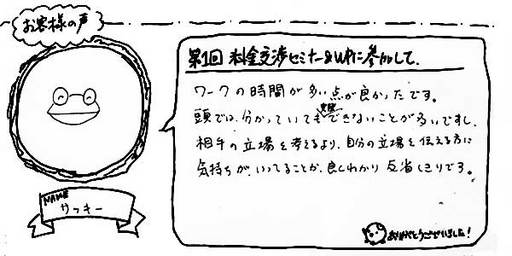 お客様の声
第1回 料金交渉セミナー&WPに参加して
ワークの時間が多い点が良かったです。
頭では、分かっていても実際できないことが多いですし、
相手の立場を考えるより、自分の立場を伝える方に
気持ちが、いってることが、良くわかり 反省しきりです。
NAME
サッキー
ありがとうございました!